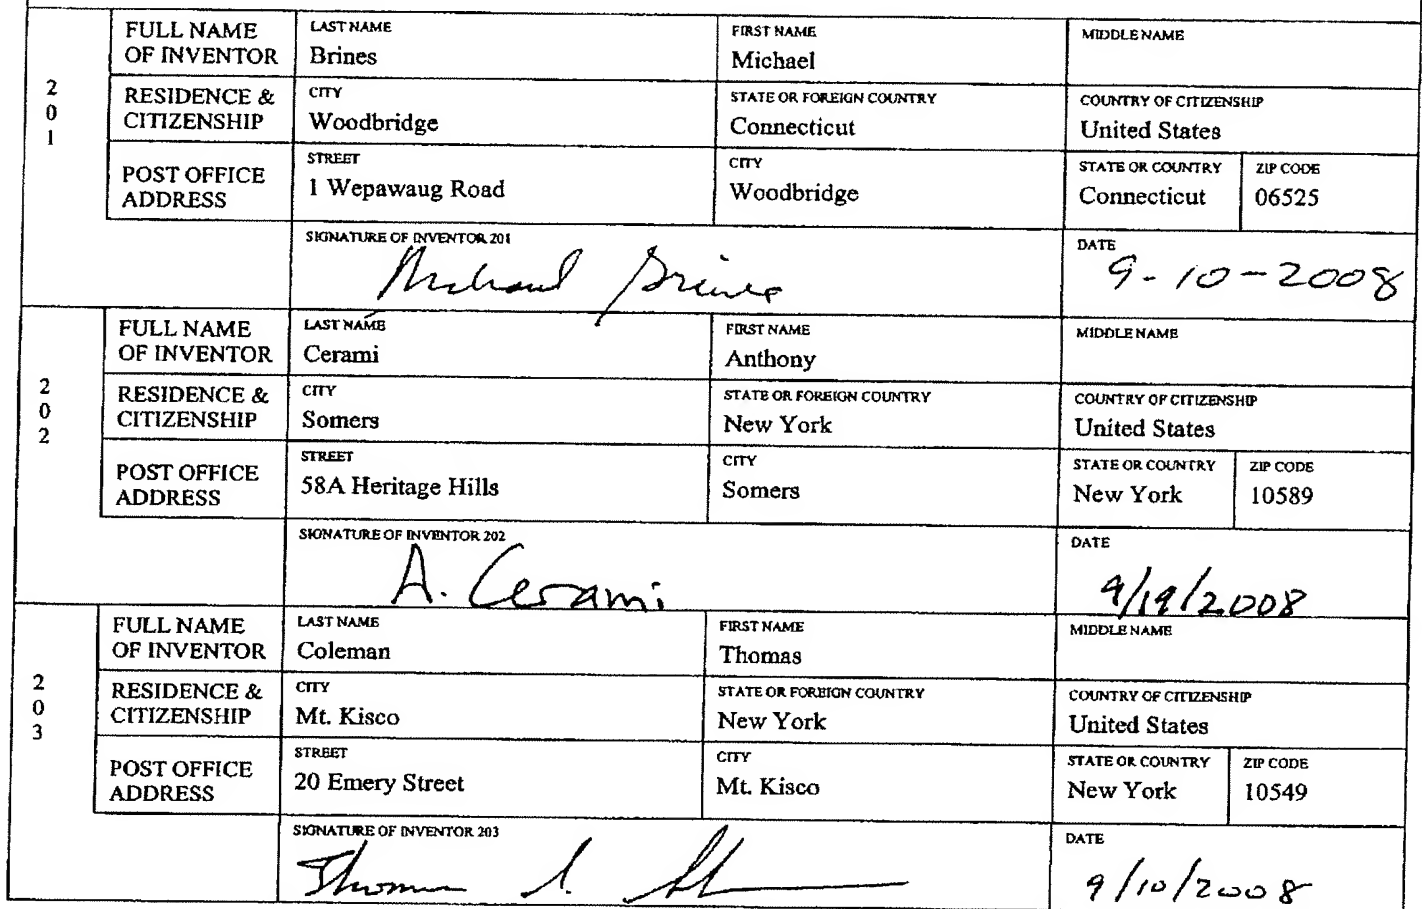 FULL NAME OF INVENTOR
LAST NAME
Brines
FIRST NAME
Michael
MIDDLE NAME
201
RESIDENCE & CITIZENSHIP
CITY
Woodbridge
STATE OR FOREIGN COUNTRY
Connecticut
COUNTRY OF CITIZENSHIP
United States
POST OFFICE ADDRESS
STREET
1 Wepawaug Road
CITY
Woodbridge
STATE OR COUNTRY
Connecticut
ZIP CODE
06525
SIGNATURE OF INVENTOR 201
Michael Brines
DATE
9-10-2008
FULL NAME OF INVENTOR
LAST NAME
Cerami
FIRST NAME
Anthony
MIDDLE NAME
202
RESIDENCE & CITIZENSHIP
CITY
Somers
STATE OR FOREIGN COUNTRY
New York
COUNTRY OF CITIZENSHIP
United States
POST OFFICE ADDRESS
STREET
58A Heritage Hills
CITY
Somers
STATE OR COUNTRY
New York
ZIP CODE
10589
SIGNATURE OF INVENTOR 202
A. Cerami
DATE
9/19/2008
FULL NAME OF INVENTOR
LAST NAME
Coleman
FIRST NAME
Thomas
MIDDLE NAME
203
RESIDENCE & CITIZENSHIP
CITY
Mt. Kisco
STATE OR FOREIGN COUNTRY
New York
COUNTRY OF CITIZENSHIP
United States
POST OFFICE ADDRESS
STREET
20 Emery Street
CITY
Mt. Kisco
STATE OR COUNTRY
New York
ZIP CODE
10549
SIGNATURE OF INVENTOR 203
Thomas
DATE
9/10/2008